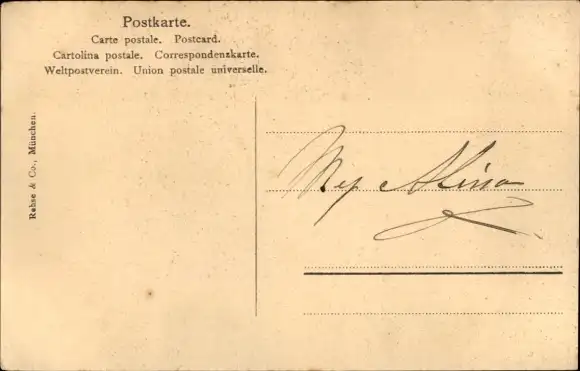 Postkarte.
Carte postale. Postcard.
Cartolina postale. Correspondenzkarte.
Weltpostverein. Union postale universelle.
Rehse & Co., München.
Alina